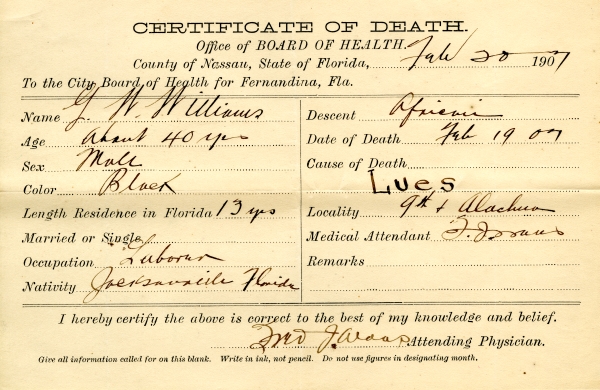 CERTIFICATE OF DEATH.
Office of BOARD OF HEALTH.
County of Nassau, State of Florida, Feb 20 1907
To the City Board of Health for Fernandina, Fla.
Name G. W. Williams
Age About 40 yrs
Sex Male
Color Black
Length Residence in Florida 13 yrs
Married or Single
Occupation Laborer
Nativity Jacksonville Florida
Descent African
Date of Death Feb 19 07
Cause of Death
Lues
Locality 9th & Alachua
Medical Attendant
Remarks
I hereby certify the above is correct to the best of my knowledge and belief.
Attending Physician.
Give all information called for on this blank. Write in ink, not pencil. Do not use figures in designating month.